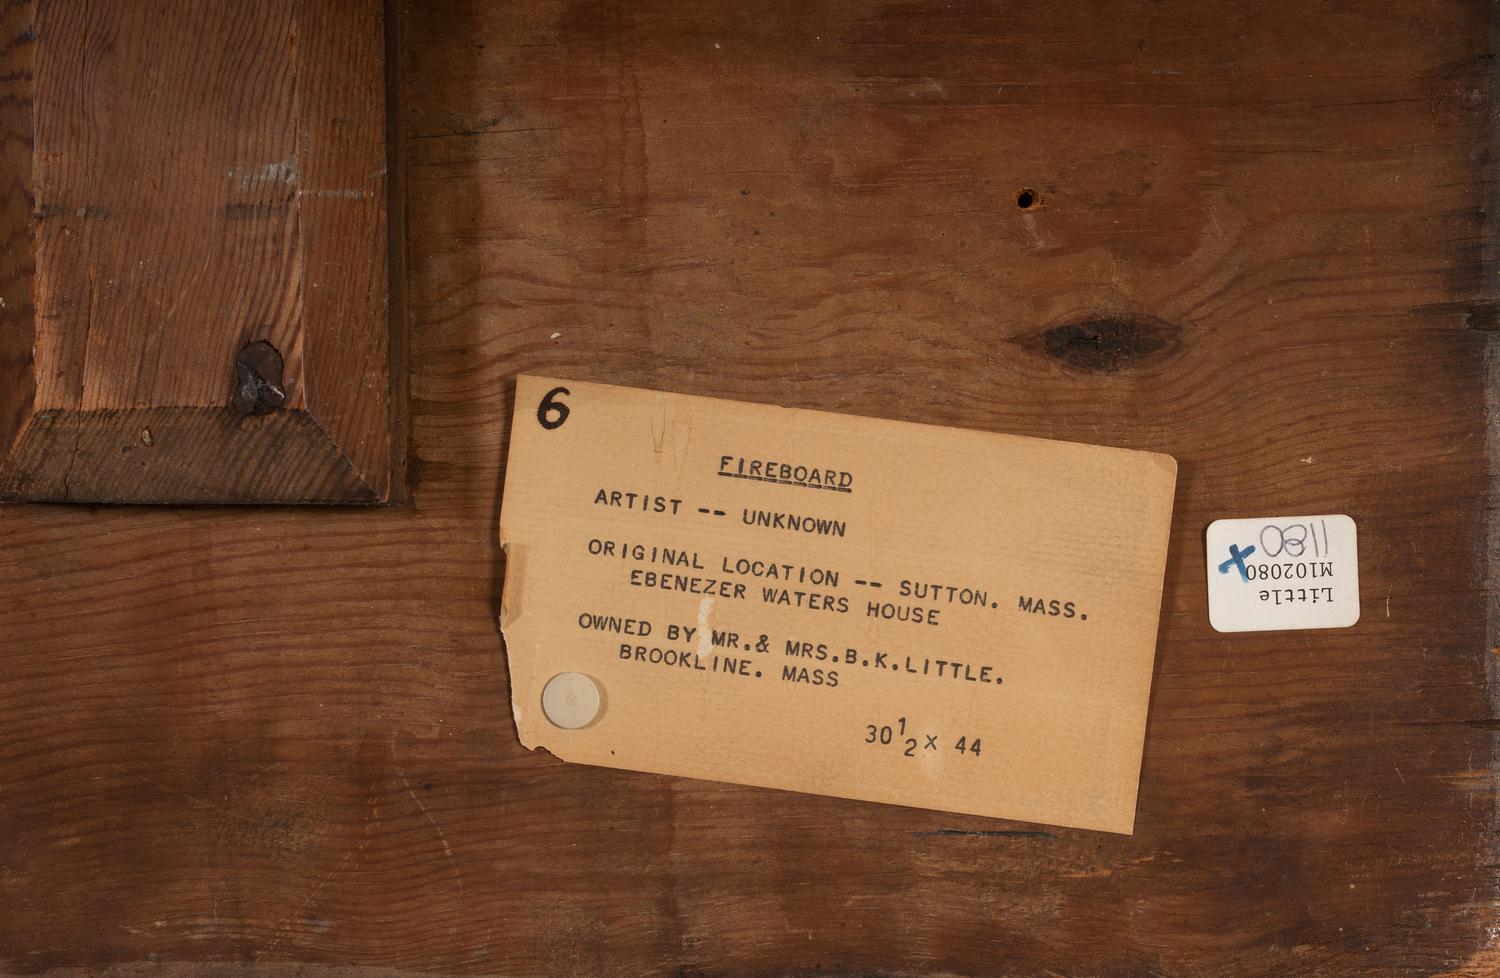 6
FIREBOARD
ARTIST -- UNKNOWN
ORIGINAL LOCATION -- SUTTON. MASS.
EBENEZER WATERS HOUSE
OWNED BY MR.& MRS.B.K.LITTLE.
BROOKLINE. MASS
30 1/2 x 44
Little
M102080
1180